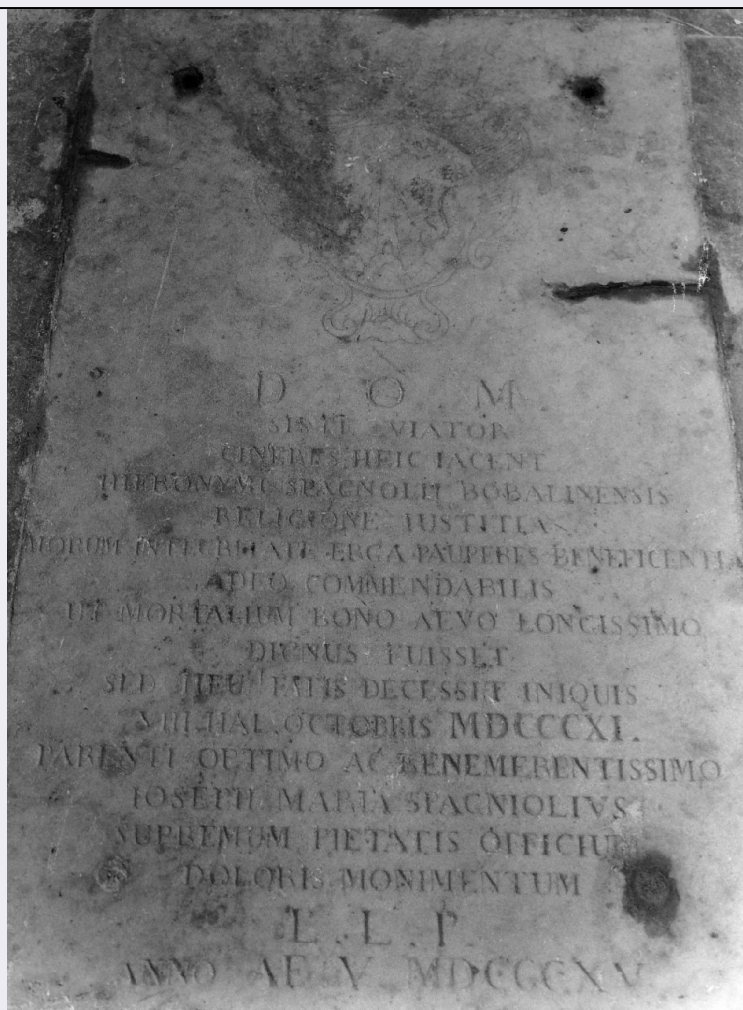 D O M
SISTE VIATOR
CINERES HEIC IACENT
HIERONYMI SPAGNOLII BOBALINENSIS
RELIGIONE IUSTITIA
MORUM INTEGRITATE ERGA PAUPERES BENEFICENTIA
ADEO COMMENDABILIS
UT MORTALIUM BONO AEVO LONGISSIMO
DIGNUS FUISSET
SED HEU FATIS DECESSIT INIQUIS
VIII KAL OCTOBRIS MDCCCXI.
PARENTI OPTIMO AC BENEMERENTISSIMO
IOSEPH MARIA SPAGNIOLIVS
SUPREMUM PIETATIS OFFICIUM
DOLORIS MONIMENTUM
L. L. P.
ANNO AE V MDCCCXV